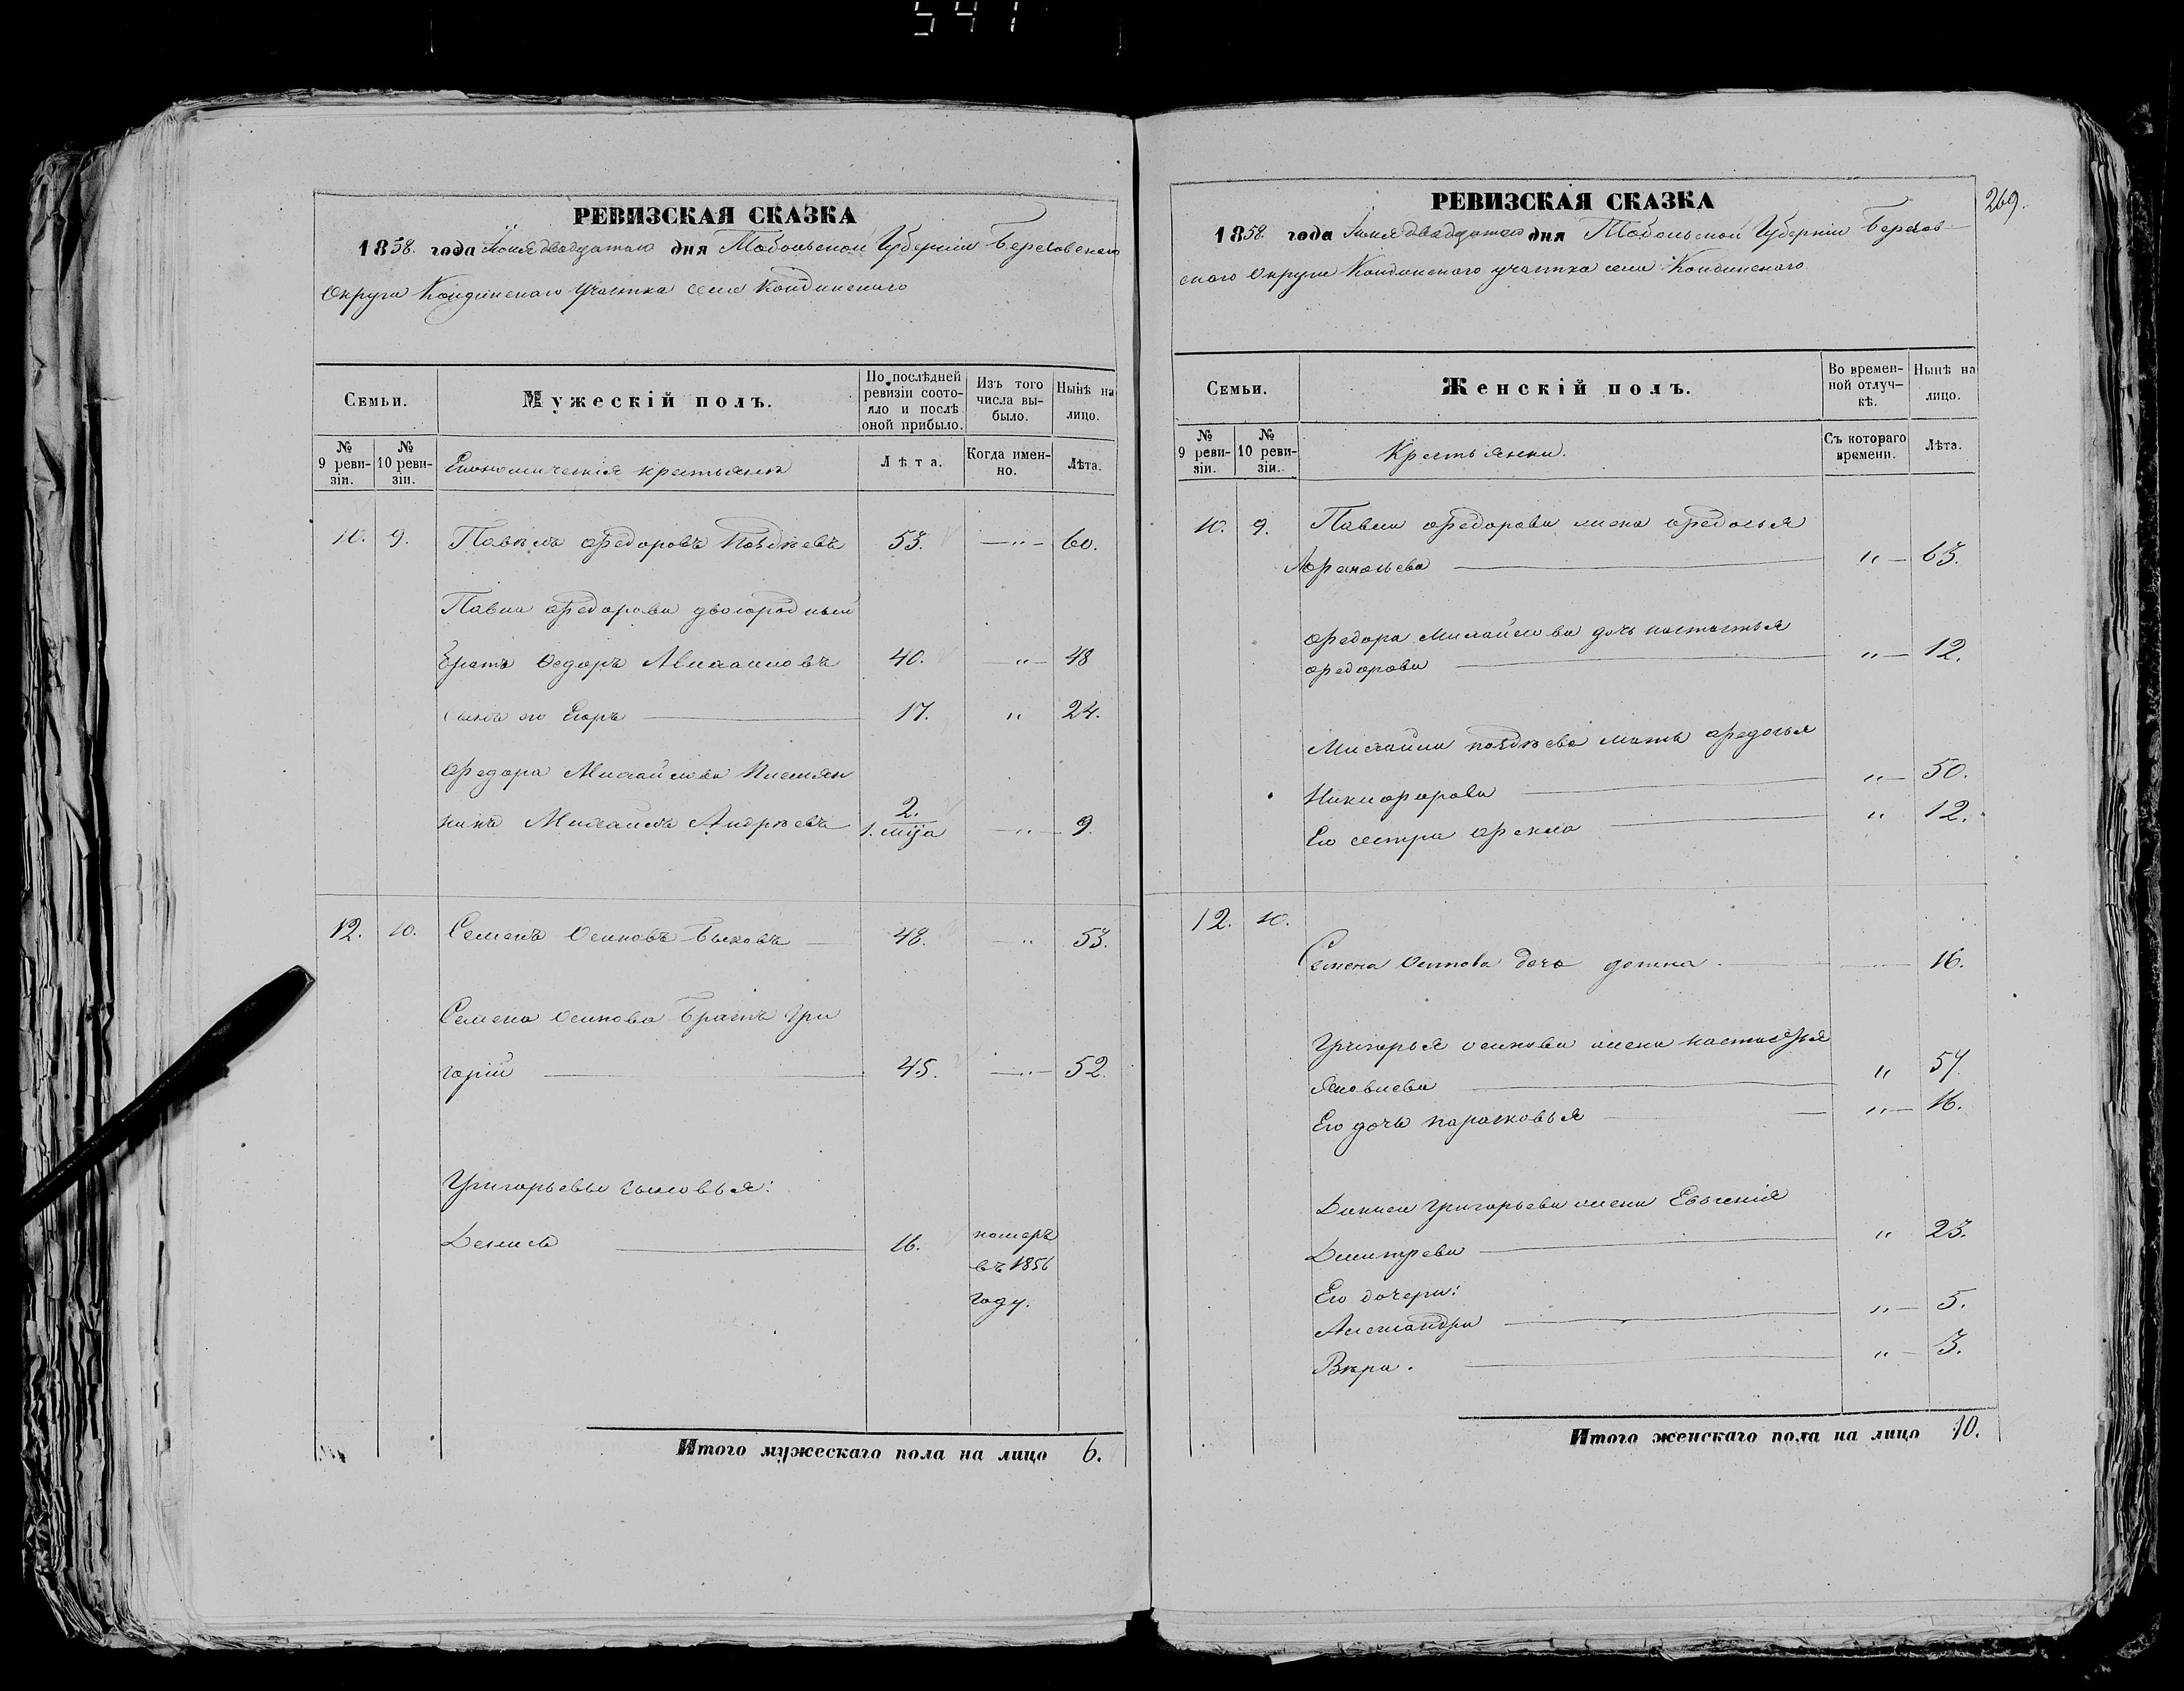 541
РЕВИЗСКАЯ СКАЗКА
1858. года Іюня двадцатаго дня Тобольской Губерніи Березовскаго
Округа Кондинскаго участка села Кондинскаго
Семьи.
Мужескій полъ.
По послѣдней ревизіи состояло и послѣ оной прибыло.
Изъ того числа выбыло.
Нынѣ на лицо.
№ 9 ревизіи.
№ 10 ревизіи.
Економическія крестьяна
Лѣта.
Когда именно.
Лѣта.
10. 9. Павелъ Федоровъ Поздѣевъ 53. —„— 60.
Павла Федорова двоюродный
братъ Федоръ Михайловъ 40. „— 48
сынъ его Егоръ 17. „ 24.
Федора Михайлова племян
никъ Михайлъ Андрѣевъ 2. 1. мц̃а —„— 9.
12. 10. Семенъ Осиповъ Быковъ 48. — „ 53.
Семена Осипова братъ Гри
горій 45. —„— 52.
Григорьевы сыновья:
Денисъ 16. померъ
въ 1856
году.
Итого мужескаго пола на лицо 6.
269.
РЕВИЗСКАЯ СКАЗКА
1858. года Іюня двадцатаго дня Тобольской Губерніи Березов
скаго Округа Кондинскаго участка села Кондинскаго.
Семьи.
Женскій полъ.
Во временной отлучкѣ.
Нынѣ на лицо.
№ 9 ревизіи.
№ 10 ревизіи.
Крестьянки.
Съ котораго времени.
Лѣта.
10. 9. Павла Федорова жена Федосья
„— 63.
Федора Михайлова дочь настасья
Федорова „— 12.
Михайла поздѣева мать Федосья
Никифорова „— 50.
Его сестра Фекла „ 12.
12. 10.
Семена Осипова дочь 16.
Григорья осипова жена настасья
Яковлева „ 57
Его дочь парасковья „— 16.
Дениса григорьева жена Евгенія
Дмитрева „ 23.
Его дочери:
Александра „— 5.
Вѣра. „— 3.
Итого женскаго пола на лицо 10.